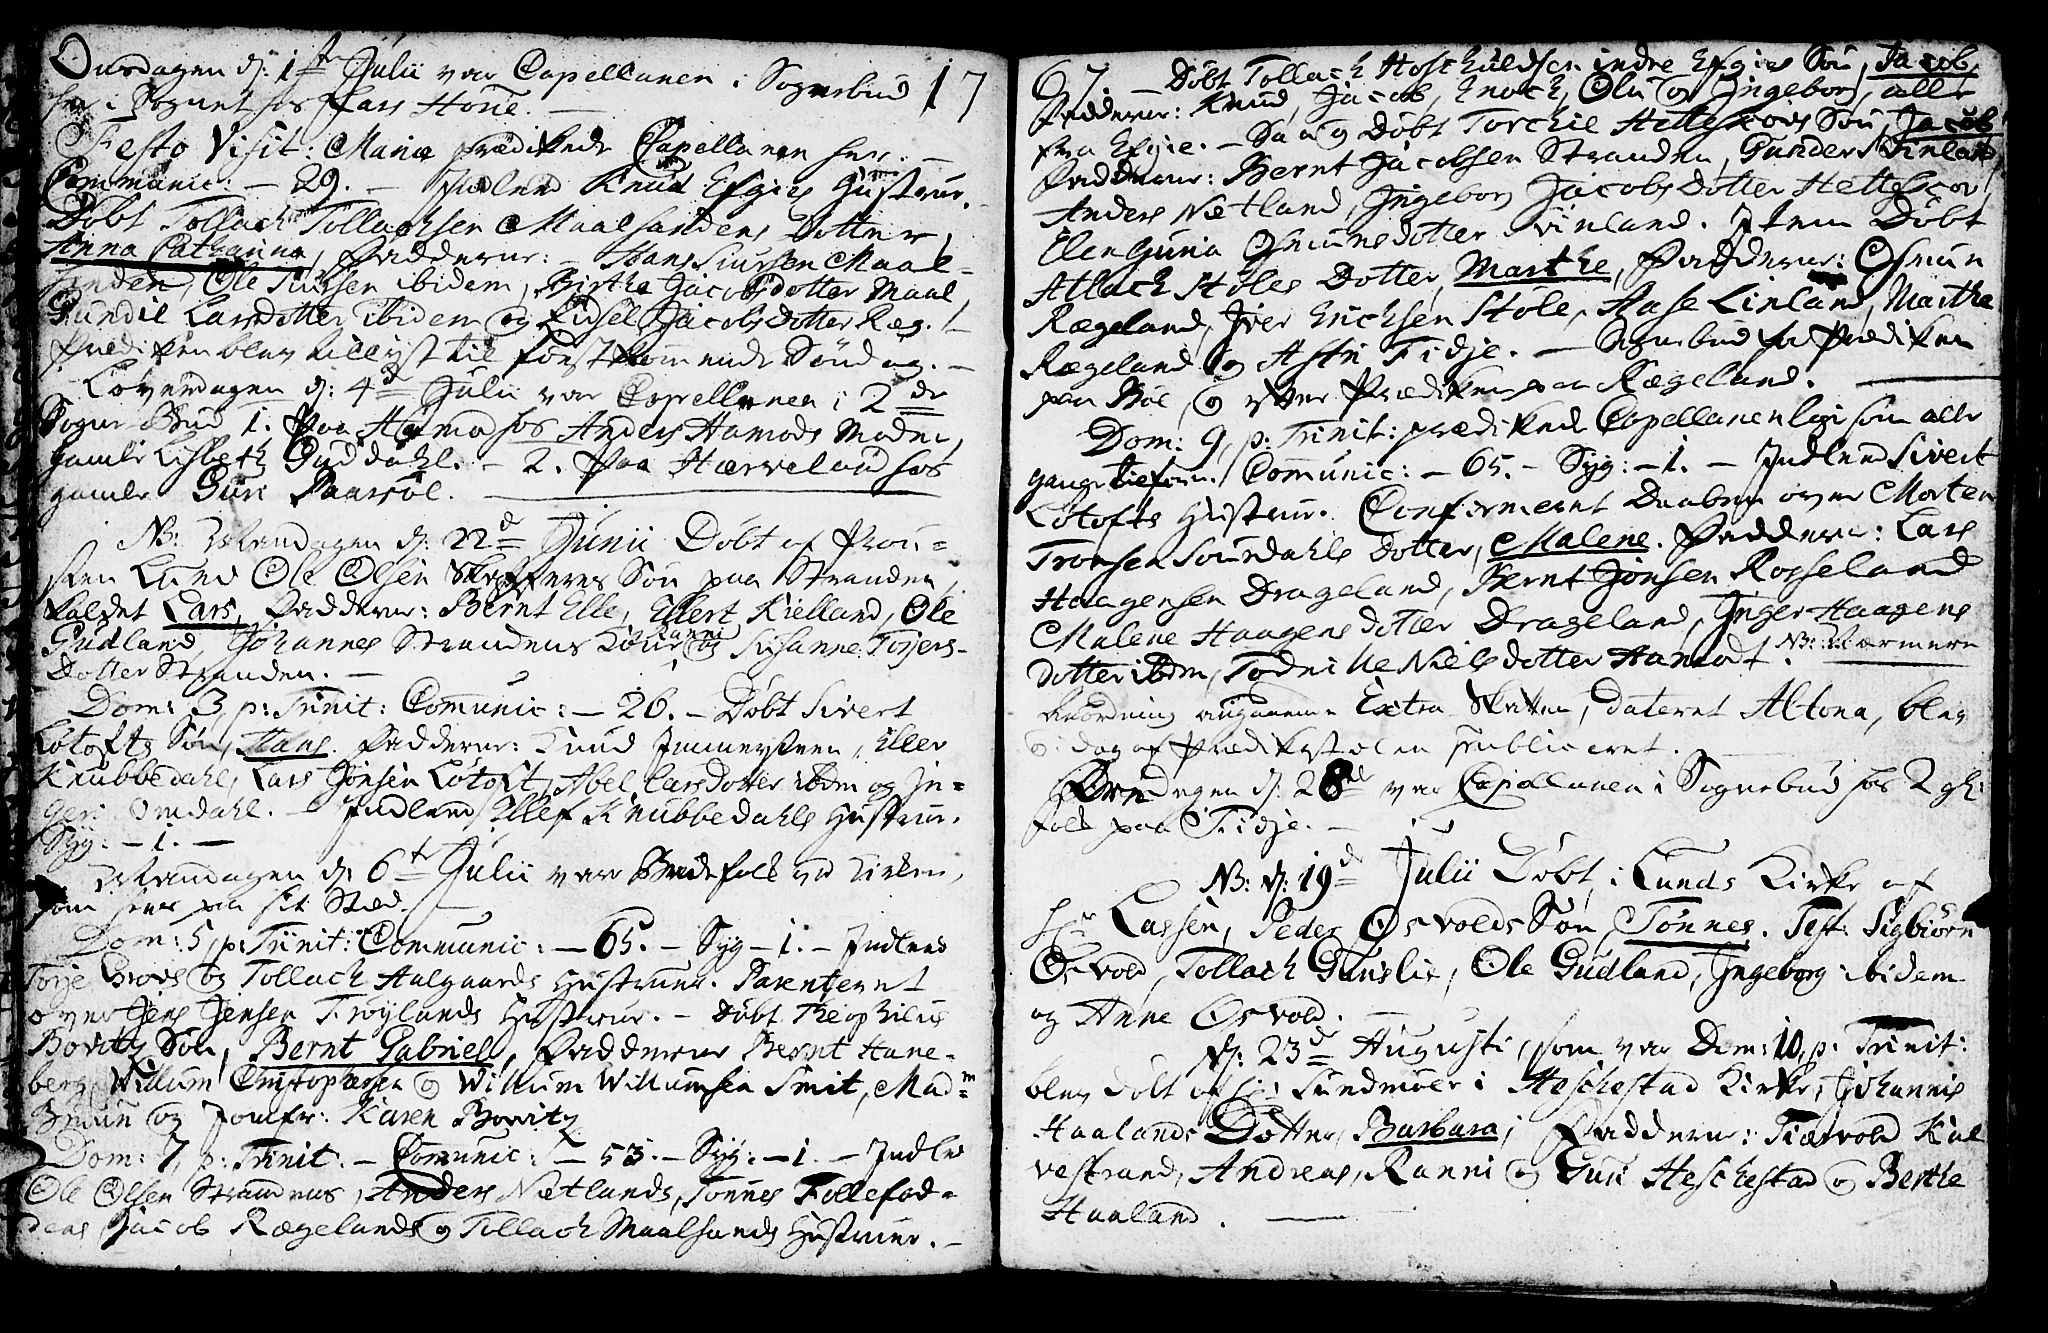 Onsdagen d: 1ste Julii var Capellanen i Sognebud 17
her i Sognet hos Lars Hove. —
Festo Visit: Mariæ prædikede Capellanen her. —
Communic: — 29. — Indleed Knud Efgies Hustrue.
Døbt Tollach Tollachsen Maalsandens Dotter,
Anna Catharina, Fadderne: — Hans Siursen Maal-
sanden, Ole ibidem, Birthe Jacobsdotter Maal,
Gundil Larsdotter ibidem og Sidsel Jacobs Dotter Ræg. —
Prædiken blev tillyst til først kommende Søndag. —
Løverdagen d: 4de Julii var Capellanen i 2de
Sogne Bud 1. paa Hamod hos Anders Hamods Moder,
gamle Lisbeth Guddahl. — 2. paa Hærveland hos
gamle Guri
NB: Mandagen d: 22d Junii Døbt af Prou-
sten Lund Ole Olsen Søn paa Stranden,
kaldet Lars, Fadderne: Bernt Elle, Ellert Kielland, Ole
Gudland, Johannes Strandens Kone Ranni og Susanne Torjers-
Dotter Stranden. —
Dom: 3, p: Trinit: Communic: — 26. — Døbt Sivert
Løtofts Søn, Hans. Fadderne: Knud Jmmersteen, Eller
Knubbedahl, Lars Jonsen Løtoft, Abel Larsdotter ibdm og In-
geri Omdahl. — Indleed Ellef Knubbedahls Hustrue.
Syg: — 1. —
Mandagen d: 6te Julii var Brudefolk ved Kirken,
som sees paa sit Sted. —
Dom: 5, p: Trinit: Communic: — 65. — Syg — 1. — Indleed
Torje Erods og Tollach Aalgaards Hustruer. Parenteret
over Jens Jensen Frøylands Hustrue. — Døbt Theophilus
Bovitz Søn, Bernt Gabriel, Fadderne Bernt Hane-
berg, Willum Christophersen og Willum Willumsen Smit, Madm
Bruun og Jomfr: Karen Bovitz
Dom: 7, p: Trinit. — Communic: — 53. — Syg: — 1. — Indled
Ole Olsen Strandens, Anders Nietlands, Tønnes Follefod-
dens Jacob Rægelands og Tollach Maalsands Hustruer. —
67. — Døbt Tollach Hoschuldsen indre Efgies Søn, Jacob,
Fadderne: Knud, Jacob, Enoch, Olu og Ingebor, alle
fra Efgie. — Saa og Døbt Torchil Hetteschous Søn, Jacob
Fadderne: Bernt Jacobsen Stranden, Gunder Vinland
Anders Nietland, Ingebor Jacobs Dotter Hetteschou
Elen Guria Osmunsdotter Vinland. Item Døbt
Atlach Støles Dotter, Marthe, Fadderne: Osmun
Rægeland, Iver Erichsen Støle, Aase Linland, Marthe
Rægeland og Astri Fidje. — Sognebud før Prædiken
paa Bøe, og efter Prædiken paa Rægeland.
Dom: 9, p: Trinit: prædikede Capellanen ligesom alle
gange tilforn. Communic: — 65. — Syg: — 1. — Indleed Sivert
Løtofts Hustrue. Confirmeret Daaben over Morten
Tronsen Souedahls Dotter, Malene. Fadderne: Lars
Haagensen Drageland, Bernt Jonsen Rosseland
Malene Haagens Dotter Drageland, Inger Haagens
dotter ibdm, Todnille Niels dotter Hamodt. NB: Nærmere
Anordning angaaende Extra Skatten, dateret Altona, blev
og i dag af Prædikestolen publiceret.
Onsdagen d: 28de var Capellanen i Sognebud hos 2 gl:
folk paa Fidje. —
NB: d: 19d Julii Døbt i Lunds Kirke af
Hr Lassen, Peder Osvolds Søn, Tønnes. Test: Sigbiørn
Osvold, Tollach Gunslie, Ole Gudland, Ingeborg ibidem
og Anne Osvold. —
d: 23d Augusti, som var Dom: 10, p: Trinit:
blev døbt af Hr Sundmoer i Heschestad Kirke, Johannes
Haalands Dotter, Barbara, Fadderne: Tiærvold Kal
vestrand, Andreas, Ranni og Guri Heschestad og Berthe
Haaland. —